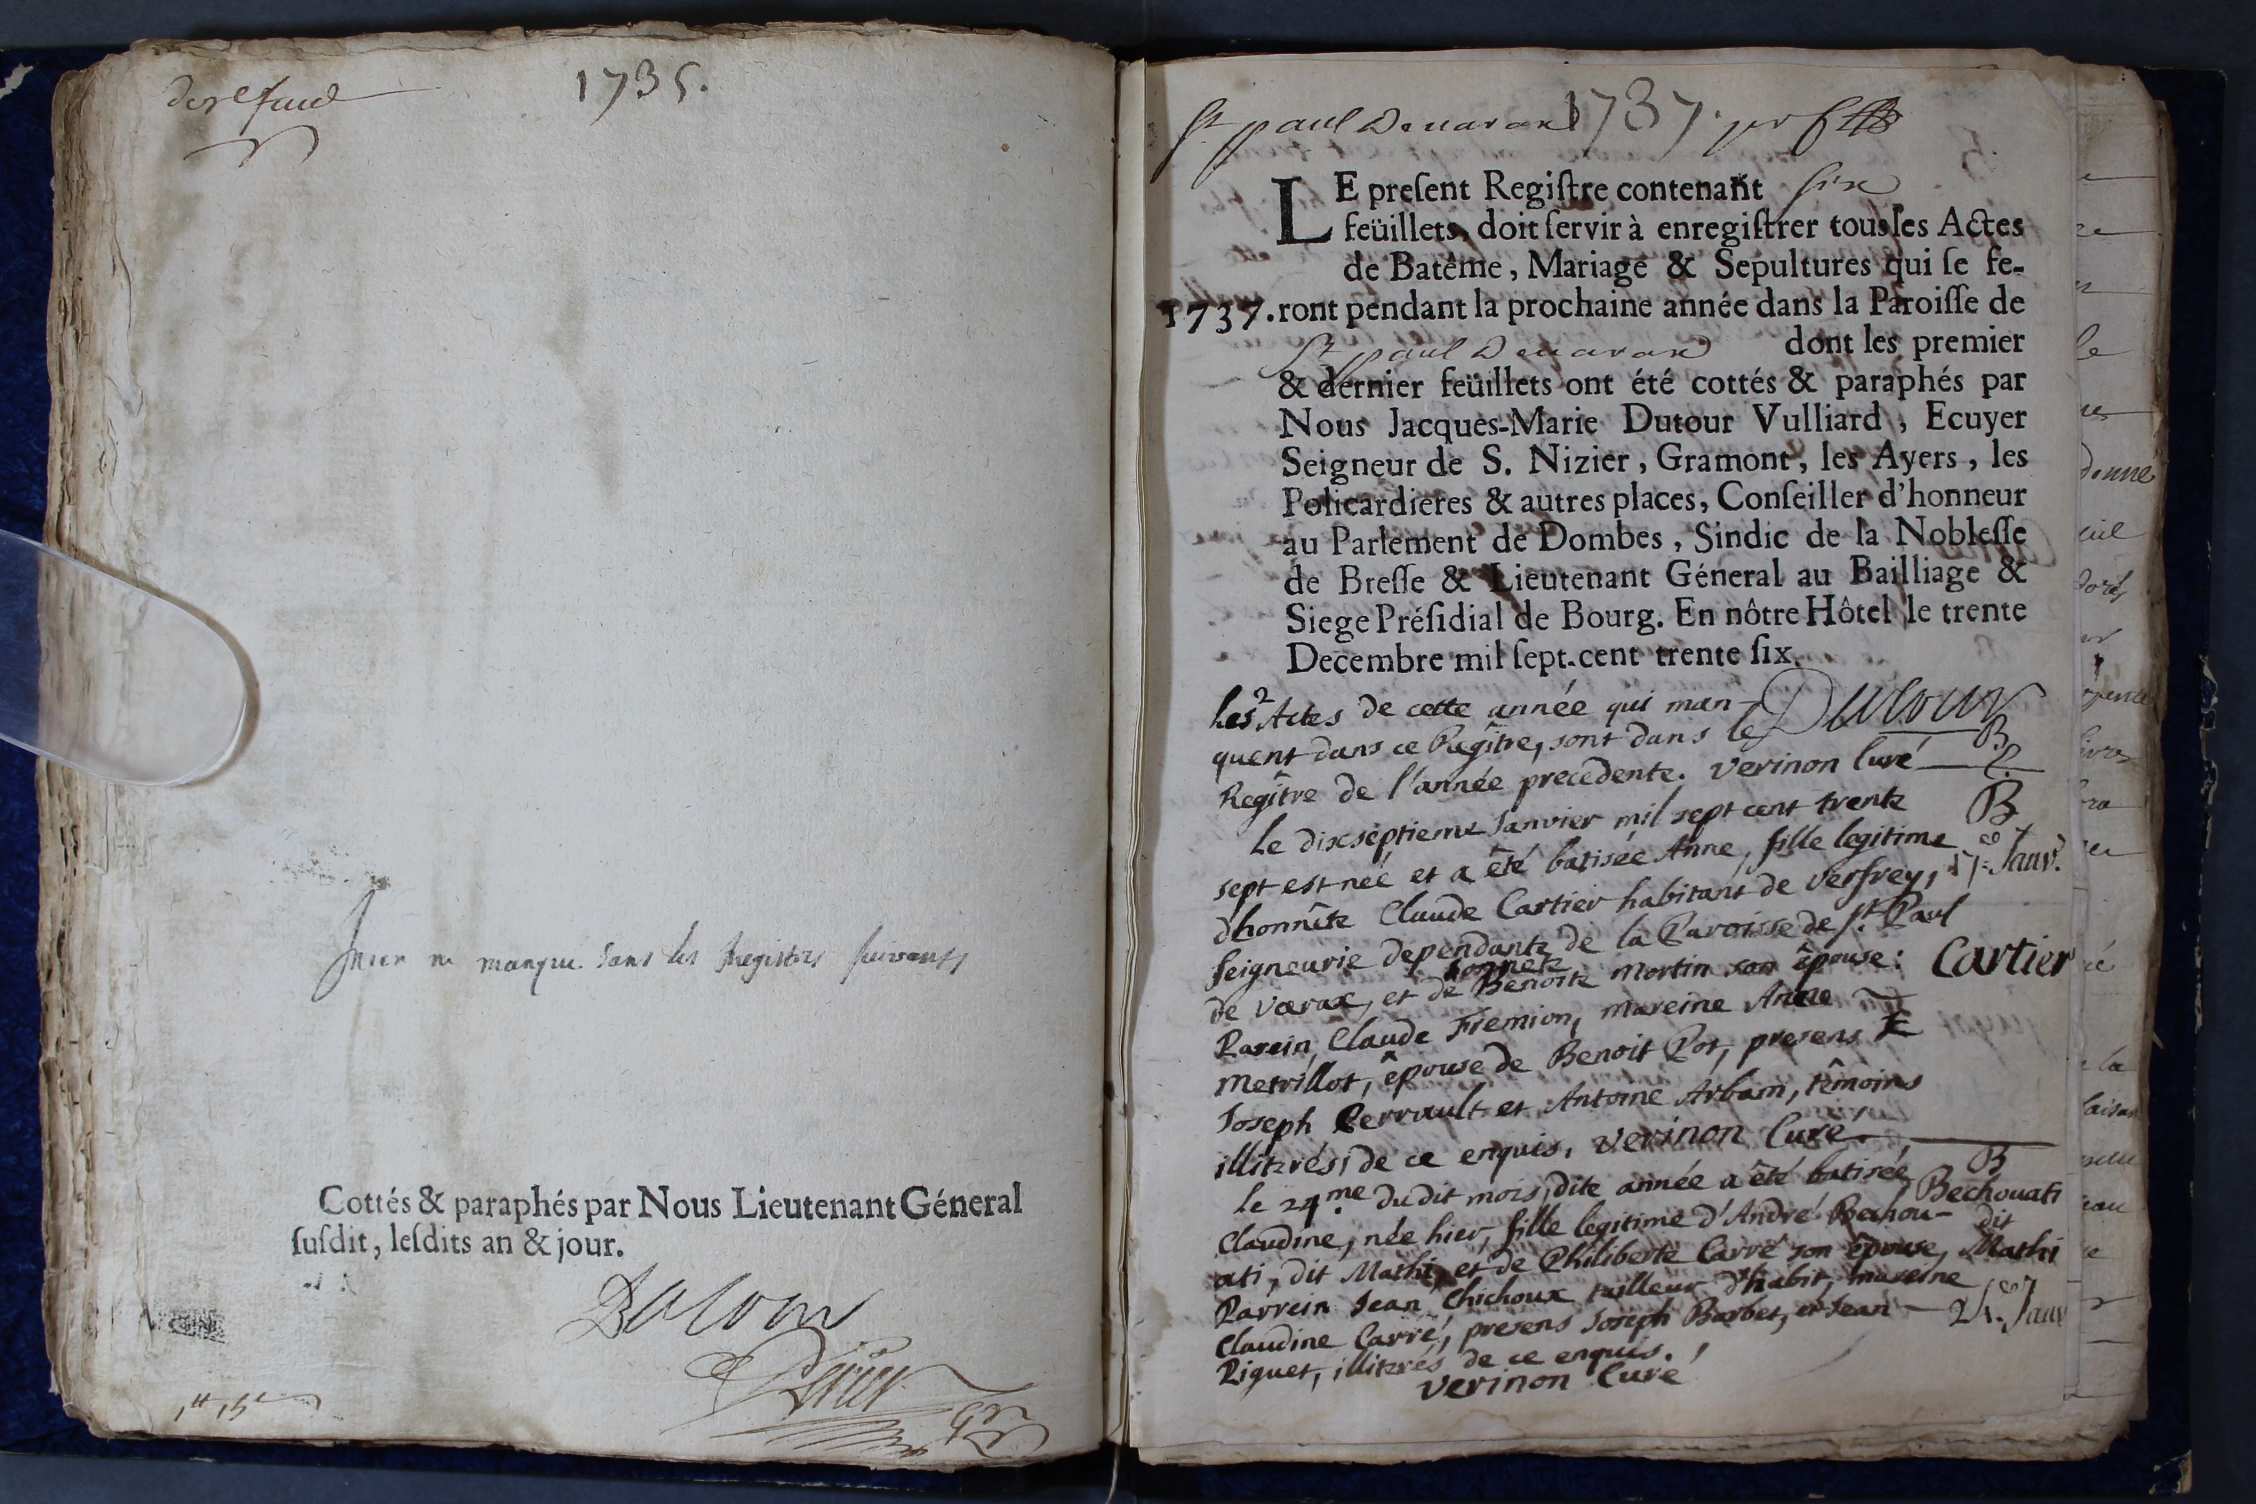 1735.
Rien ne manque dans les Registres suivants
Cottés & paraphés par Nous Lieutenant Géneral
ſuſdit, leſdits an & jour.
Dutour
St paul Deuarax 1737.
LE preſent Regiſtre contenant six
feüillets, doit ſervir à enregiſtrer tous les Actes
de Batême, Mariage & Sepultures qui ſe fe-
1737. ront pendant la prochaine année dans la Paroiſſe de
St paul Deuarax dont les premier
& dernier feüillets ont été cottés & paraphés par
Nous Jacques-Marie Dutour Vulliard, Ecuyer
Seigneur de S. Nizier, Gramont, les Ayers, les
Policardieres & autres places, Conſeiller d'honneur
au Parlement de Dombes, Sindic de la Nobleſſe
de Breſſe & Lieutenant Géneral au Bailliage &
Siege Préſidial de Bourg. En nôtre Hôtel le trente
Decembre mil ſept-cent trente ſix.
Dutour
les 2 Actes de cette année qui man-
quent dans ce Regître, sont dans le
Regître de l'année precedente. Verinon Curé
B
Le dixseptieme Janvier mil sept cent trente
sept est née et a êté batisée Anne, fille legitime
17 Janv.
d'honnête Claude Cartier habitant de Verfrey,
Seigneurie dependante de la Paroisse de St. Paul
de Varax, et de honnete Benoite Mortin son êpouse:
Cartier
Parein Claude Fremion, mareine Anne
Metrillot, êpouse de Benoit Pot, presens
Joseph Perrault et Antoine Arbain, têmoins
illitrés, de ce enquis, Verinon Curé.
B
le 24.me dudit mois, dite année a êté batisée
Claudine, née hier, fille legitime d'André Bechou-
Bechouati
ati, dit Mathi, et de Philiberte Carré son êpouse,
dit
Mathi
Parrein Jean Chichoux tailleur d'habit, mareine
Claudine Carré, presens Joseph Barbet, et Jean
24. Janv
Piquet, illitrés de ce enquis.
Verinon Curé